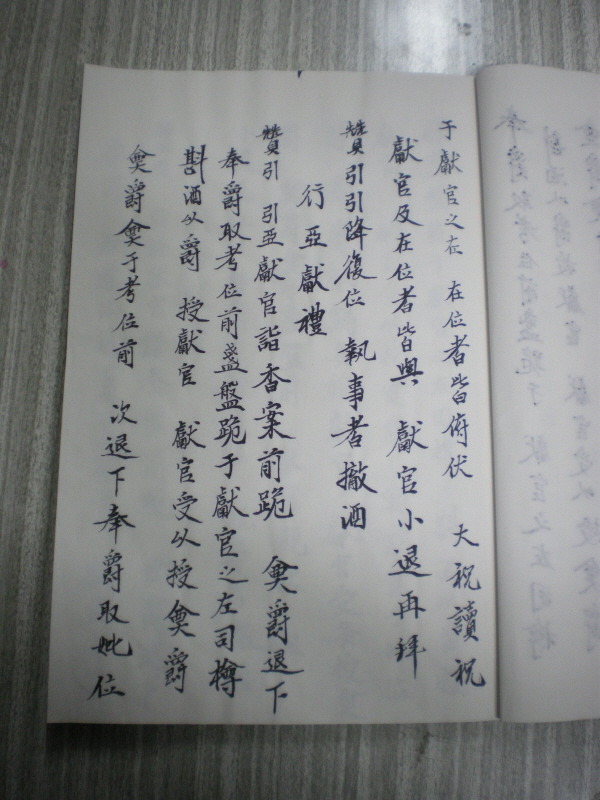 于獻官之左 在位者皆俯伏 大祝讀祝
獻官及在位者皆興 獻官小退再拜
贊引引降復位 執事者撤酒
行亞獻禮
贊引 引亞獻官詣香案前跪 奠爵退下
奉爵取考位前盞盤跪于獻官之左司樽
斟酒以爵 授獻官 獻官受以授奠爵
奠爵奠于考位前 次退下奉爵取妣位